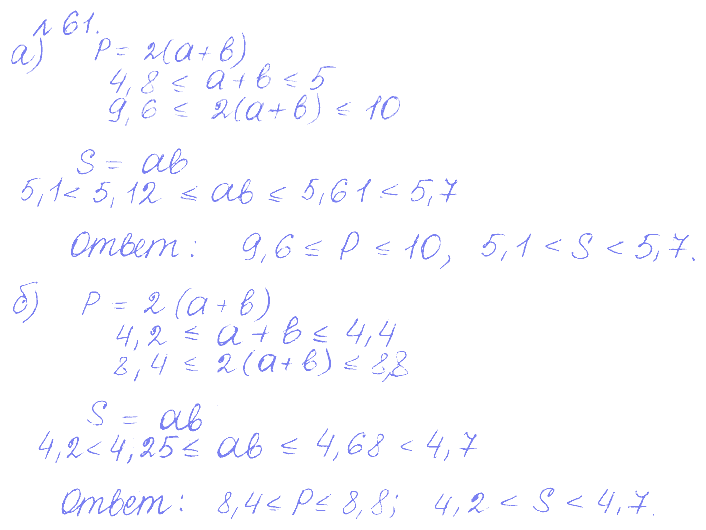 № 61.
а) P = 2(a + b)
4,8 ≤ a + b ≤ 5
9,6 ≤ 2(a + b) ≤ 10
S = ab
5,1 < 5,12 ≤ ab ≤ 5,61 < 5,7
Ответ: 9,6 ≤ P ≤ 10, 5,1 < S < 5,7.
б) P = 2(a + b)
4,2 ≤ a + b ≤ 4,4
8,4 ≤ 2(a + b) ≤ 8,8
S = ab
4,2 < 4,25 ≤ ab ≤ 4,68 < 4,7
Ответ: 8,4 ≤ P ≤ 8,8; 4,2 < S < 4,7.